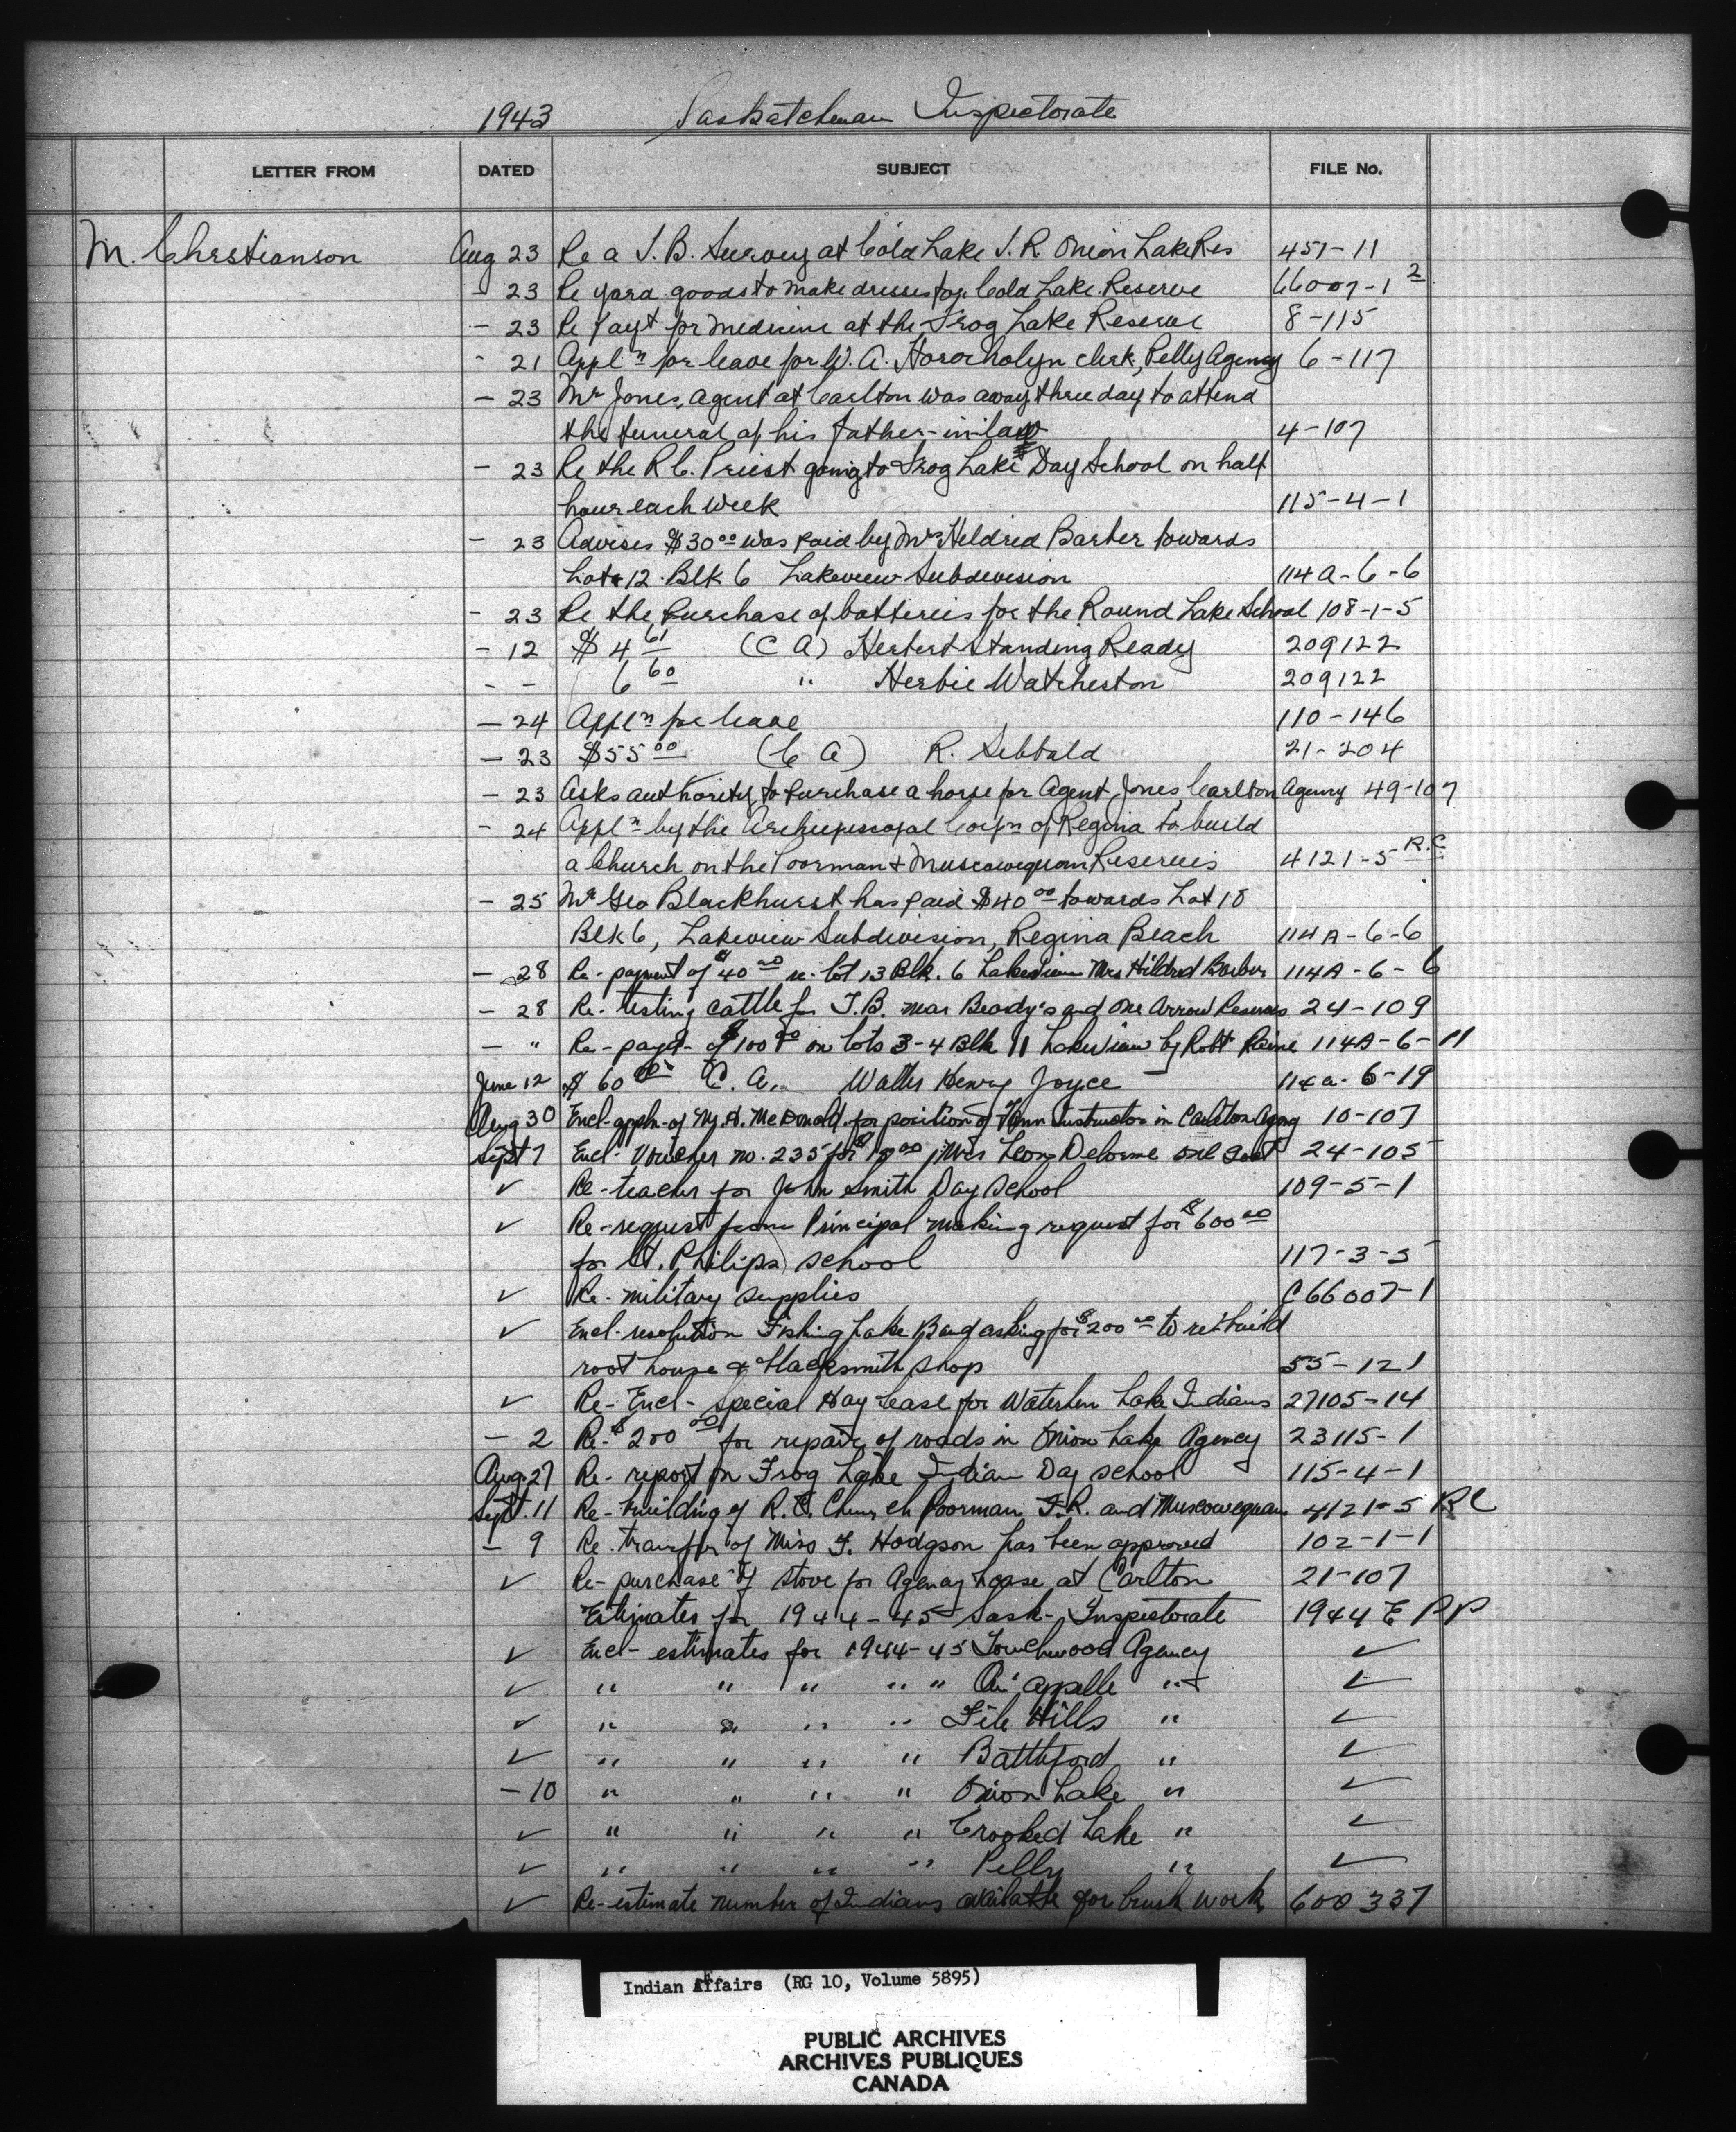 1943 Saskatchewan Inspectorate
LETTER FROM DATED SUBJECT FILE No.
M. Christianson Aug 23 Re a T.B. Survey at Cold Lake I.R. Onion Lake Res 451-11
- 23 Re yard goods to make dresses for Cold Lake Reserve 66007-1 2
- 23 Re Payt for medicine at the Frog Lake Reserve 8-115
- 21 Appln for leave for W. A. Horocholyn clerk, Pelly Agency 6-117
- 23 Mr Jones, agent at Carlton was away three day to attend
the funeral of his father-in-law 4-107
- 23 Re the R.C. Priest going to Frog Lake Day School on half
hour each week 115-4-1
- 23 Advises $30.00 was paid by Mrs Heldred Barber towards
Lot 12 Blk 6 Lakeview Subdivision 114A-6-6
- 23 Re the purchase of batteries for the Round Lake School 108-1-5
- 12 $4 61 (C A) Herbert Standing Ready 209122
- - 6 60 " Herbie Watcheston 209122
- 24 Appln for leave 110-146
- 23 $55 00 (C A) R. Sebbald 21-204
- 23 Asks authority to purchase a horse for Agent Jones, Carlton Agency 49-107
- 24 Appln by the Archiepiscopal Corpn of Regina to build
a Church on the Poorman + Muscowequan Reserves 4121-5 R.C
- 25 Mr Geo Blackhurst has paid $40 00 towards Lot 18
Blk 6, Lakeview Subdivision, Regina Beach 114A-6-6
- 28 Re-payment of $40 00 re. lot 13 Blk. 6 Lakeview Mrs Hildred Barber 114A-6-6
- 28 Re-testing cattle for T.B. near Beardy's and One Arrow Reserves 24-109
- " Re-payt- of $100 00 on lots 3-4 Blk 11 Lakeview by Robt 114A-6-11
June 12 $60 00 C. A. Walter Henry Joyce 114a-6-19
Aug 30 Encl-appln-of M. McDonald for position of Farm Instructor in Carlton Agency 10-107
Sept 7 Encl-Voucher no. 235 for Leon Delorme 24-105
✓ Re-teacher for John Smith Day School 109-5-1
✓ Re-request from Principal making request for $600 00
for St. Philips school 117-3-5
✓ Re-military supplies C66007-1
✓ Encl-resolution Fishing Lake Band asking for $200 00 to re-build
root house & blacksmith shop 55-121
✓ Re-Encl-special Hay Lease for Waterhen Lake Indians 27105-14
- 2 Re-$200 00 for repair of roads in Onion Lake Agency 23115-1
Aug. 27 Re-report on Frog Lake Indian Day School 115-4-1
Sept. 11 Re-building of R.C. Church Poorman I.R. and Muscowequan 4121-5 RC
- 9 Re. transfer of Miss F. Hodgson has been approved 102-1-1
✓ Re-purchase of stove for Agency house at Carlton 21-107
Estimates for 1944-45 Sask-Inspectorate 1944 E PP
✓ Encl-estimates for 1944-45 Touchwood Agency ✓
✓ " " " " " Qu'appelle " ✓
✓ " " " " File Hills " ✓
✓ " " " " Battleford " ✓
- 10 " " " " Onion Lake " ✓
✓ " " " " Crooked Lake " ✓
✓ " " " " Pelly " ✓
✓ Re-estimate number of Indians available for brush work 600 337
Indian Affairs (RG 10, Volume 5895)
PUBLIC ARCHIVES
ARCHIVES PUBLIQUES
CANADA